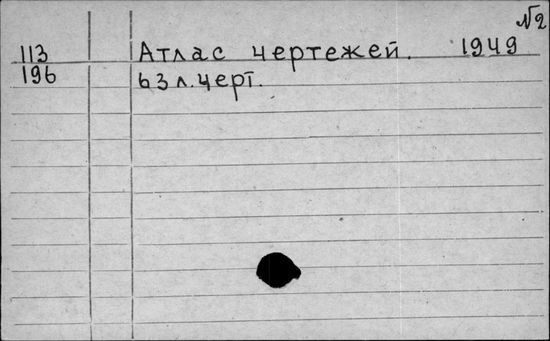 №2
113 Атлас чертежей. 1949
196 63 л. черт.